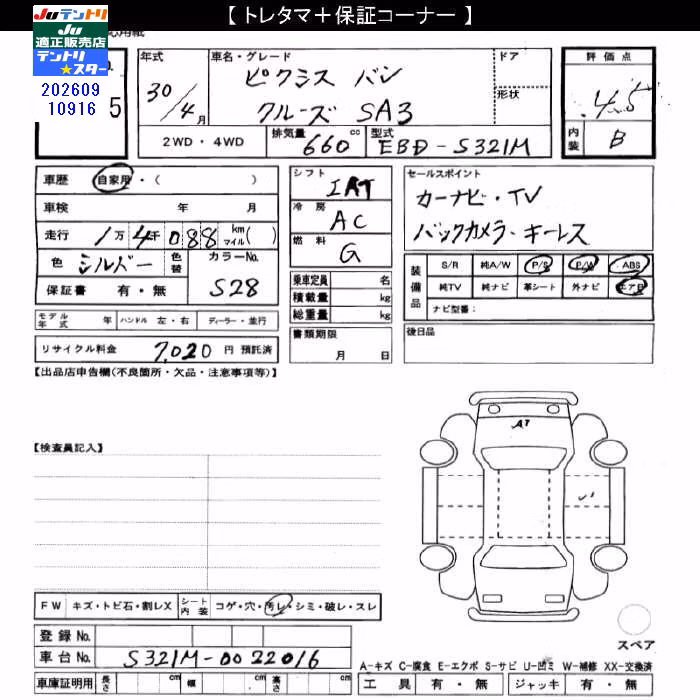 【 トレタマ＋保証コーナー 】
Juテントリ
Ju
適正販売店
テントリ
★スター
202609
10916
5
年式
30/4月
車名・グレード
ピクシス バン
クルーズ SA3
ドア
形状
評価点
4.5
内装 B
2WD・4WD
排気量 660 cc
型式 EBD-S321M
車歴 自家用・( )
車検 年 月
走行 1万4千088 km マイル( )
色 シルバー 色替 カラーNo. S28
保証書 有・無
モデル年式 年 ハンドル 左・右 ディーラー・並行
リサイクル料金 7,020 円 預託済
シフト IAT
冷房 AC
燃料 G
乗車定員 名
積載量 kg
総重量 kg
書類期限
月 日
セールスポイント
カーナビ・TV
バックカメラ・キーレス
装備品
S/R 純A/W P/S P/W ABS
純TV 純ナビ 革シート 外ナビ エアB
ナビ型番：
後日品
【出品店申告欄(不良箇所・欠品・注意事項等)】
【検査員記入】
A1
FW キズ・トビ石・割レX シート内装 コゲ・穴・汚レ・シミ・破レ・スレ
登録No.
車台No. S321M-0022016
車庫証明用 長さ cm 幅 cm 高さ cm
スペア
A-キズ C-腐食 E-エクボ S-サビ U-凹ミ W-補修 XX-交換済
工具 有・無 ジャッキ 有・無